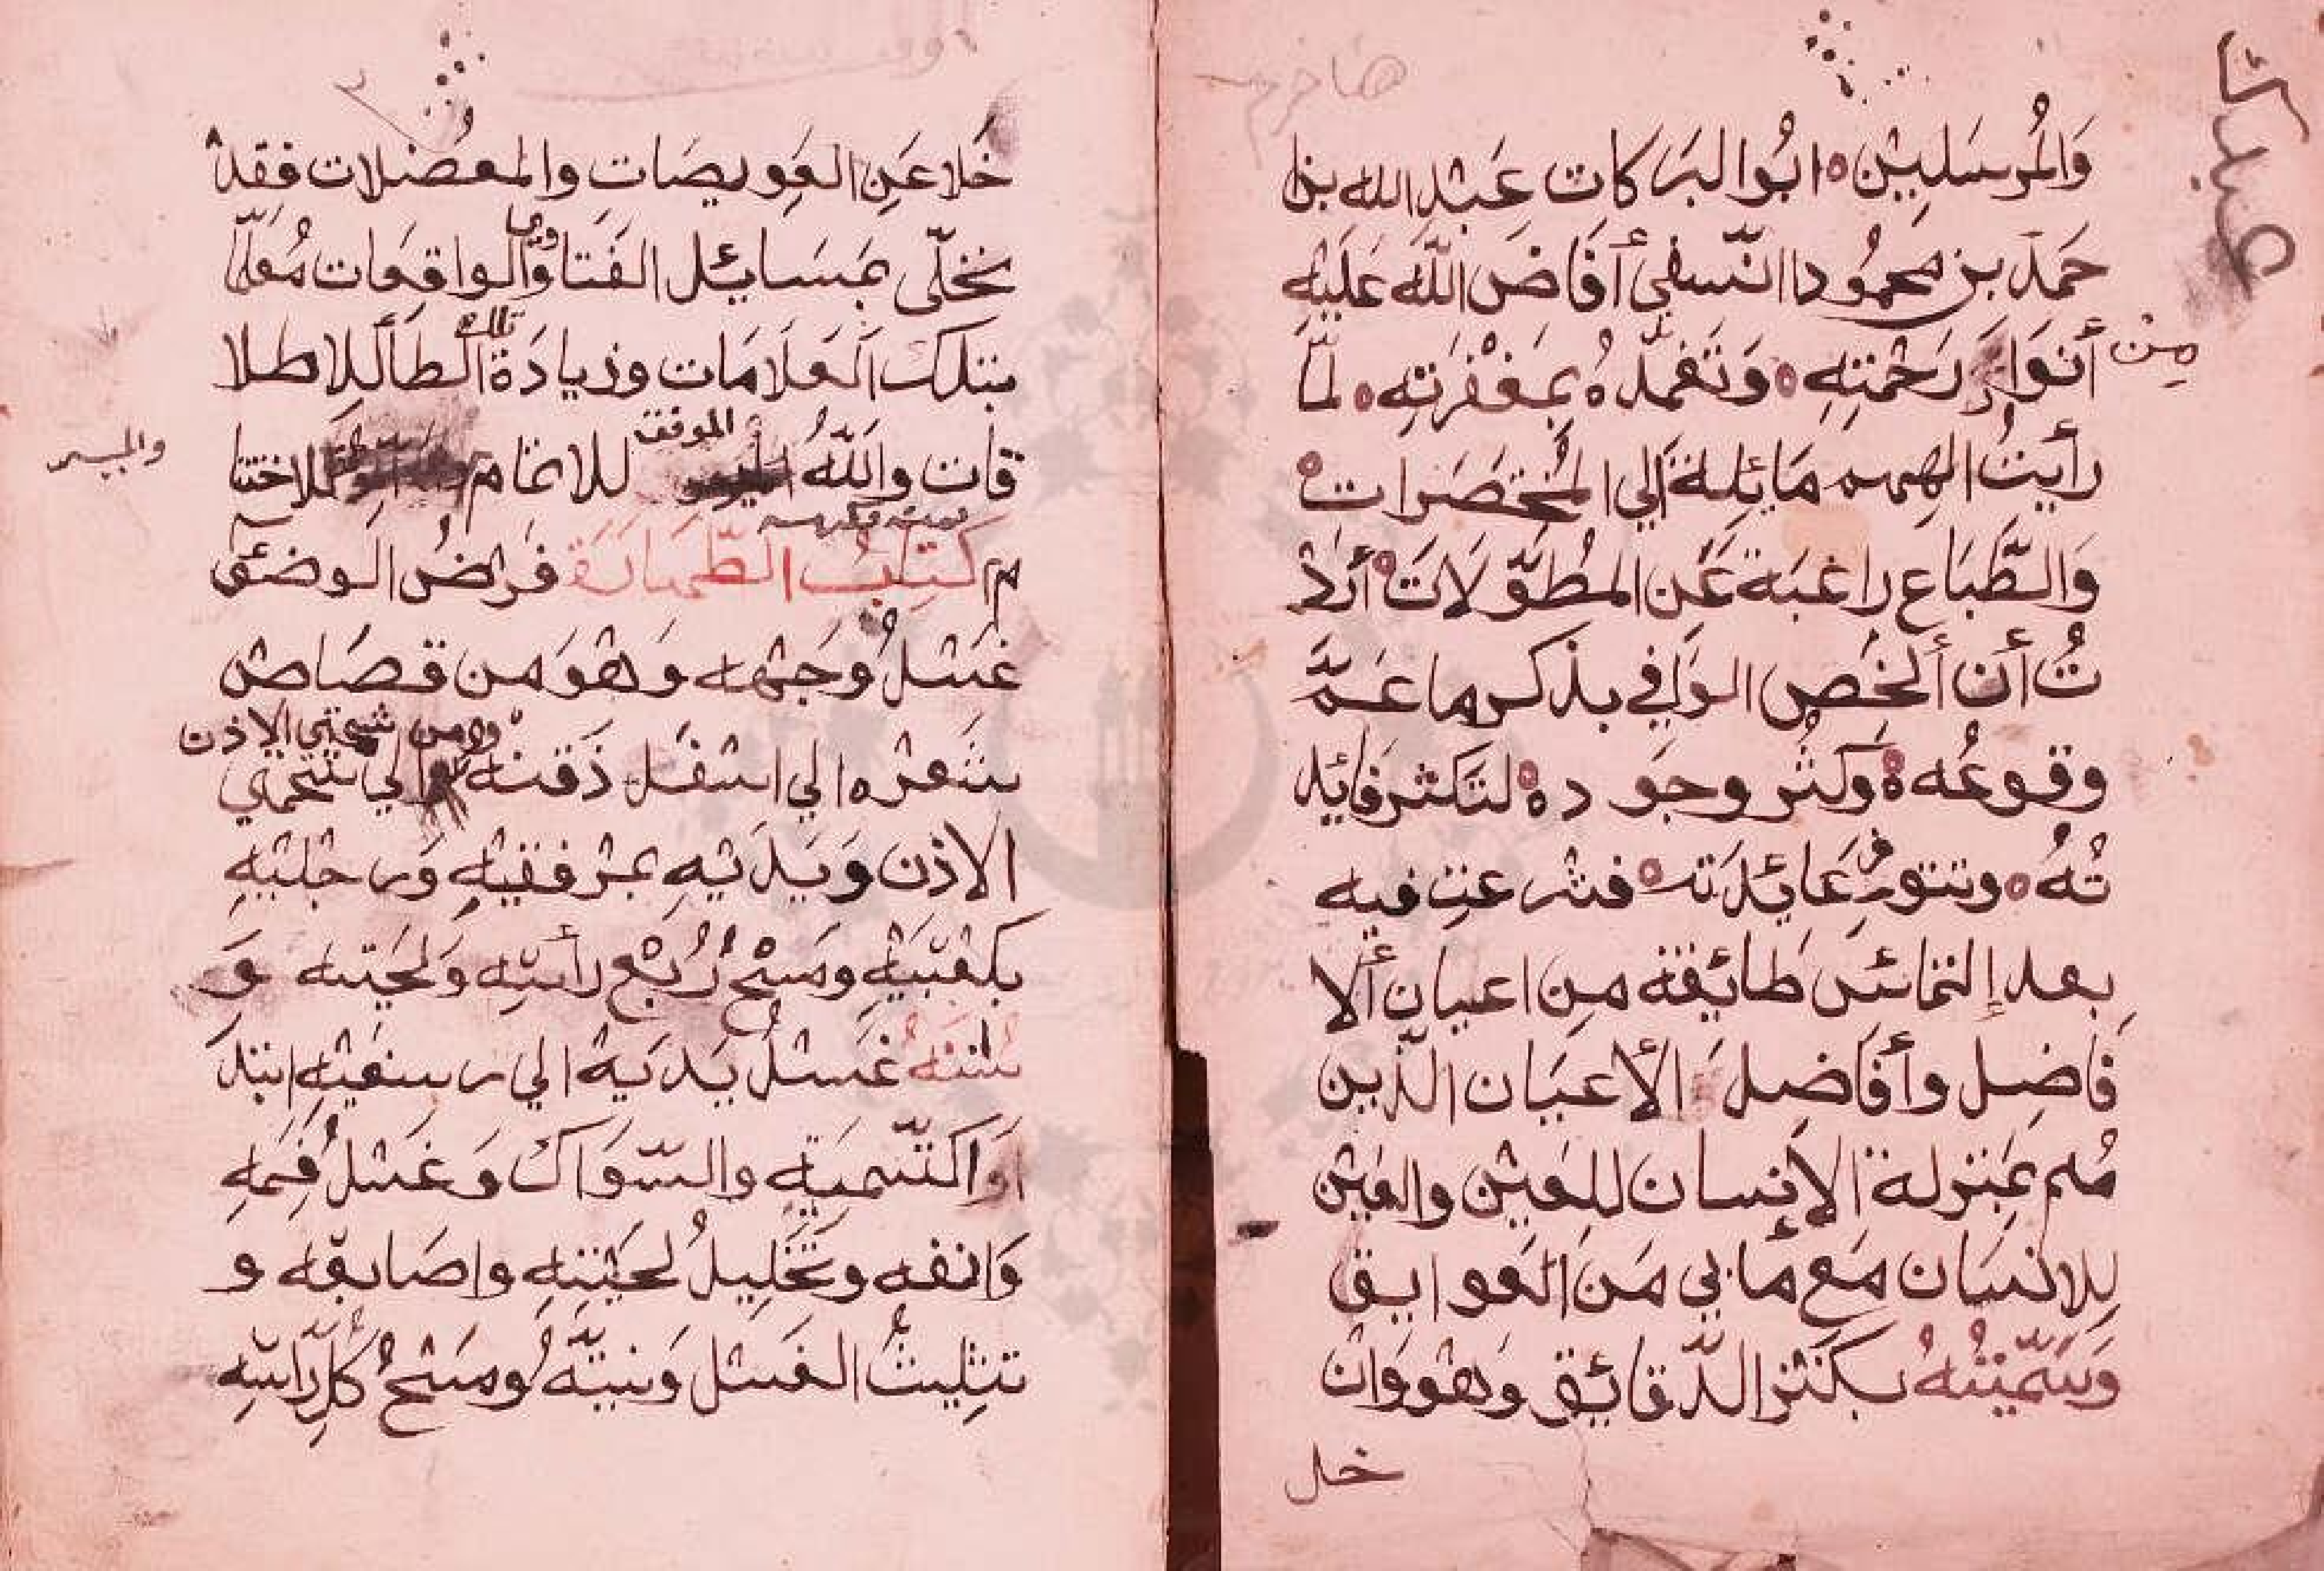 وَالْمُرْسَلِيْنَ ابُوا البَرَكات عَبْد الله بن
حَمَد بن محمُود النّسفي أفَاضَ اللّه عَلَيْهِ
مِنْ أنوَار رَحْمَتِهِ وَتَغَمَّدهُ بِمَغْفِرَتِهِ لمّا
رأيتُ الهمم مَائِلة الي المُختَصَرات
وَالطِّبَاع راغبَة عَن المُطَوَّلَات أرَدْ
تُ أن ألخّص الوَافي بذكر ما عَمَّ
وقوعُه وكثُر وجوده لتكثر فائد
تُهُ وتتوفر عَائِدَته فشرعت فيه
بعد إلتماس طائفة من اعيان ألا
فاضِل وأفَاضِل الأعيَان الذّين
هُم بمَنزلة الإنسان للعَيْن والعَيْن
لِلانسَان مَع مَا بي مَن العَوايق
وَسَمَّيْتُهُ بكَنْز الدّقائق وَهْوَ وَان
خل
خَلا عَنِ العَويصَات والمعضلات فقدْ
تحَلّى بمَسَايئل الفَتاوي والواقعَات مُعَلّما
بتلك العَلَامَات وزيادَة الطاأ للاطلا
قات واللّهُ الموفق للاتمام للاختتا
والميسر
م كتابُ الطّهَارَة فرَائضُ الوضوء
غَسْلُ وَجْهه وَهْوَ من قصَاصْ
شَعْره الي اسْفَل ذَقنه ومن شحمتي الاذن الي شحمتي
الاذن وَيَدَيْهِ بمرْفقيْهِ وَرجْليْهِ
بكعْبَيْهِ وَمَسْحُ رُبْع رأسِهِ وَلحيَته وَ
سُنَنهُ غَسْلُ يَدَيهْ الي رسغيْهِ ابتد
اوَا كتّسْميَةِ والسّوَاك وَغَسْلُ فَمِهِ
وَانفه وتخَلِيلُ لحيْتِهِ واصَابعه و
تثلِيثُ الغَسْل وَنيتّه وَمسْحُ كلّ رَأسِهِ